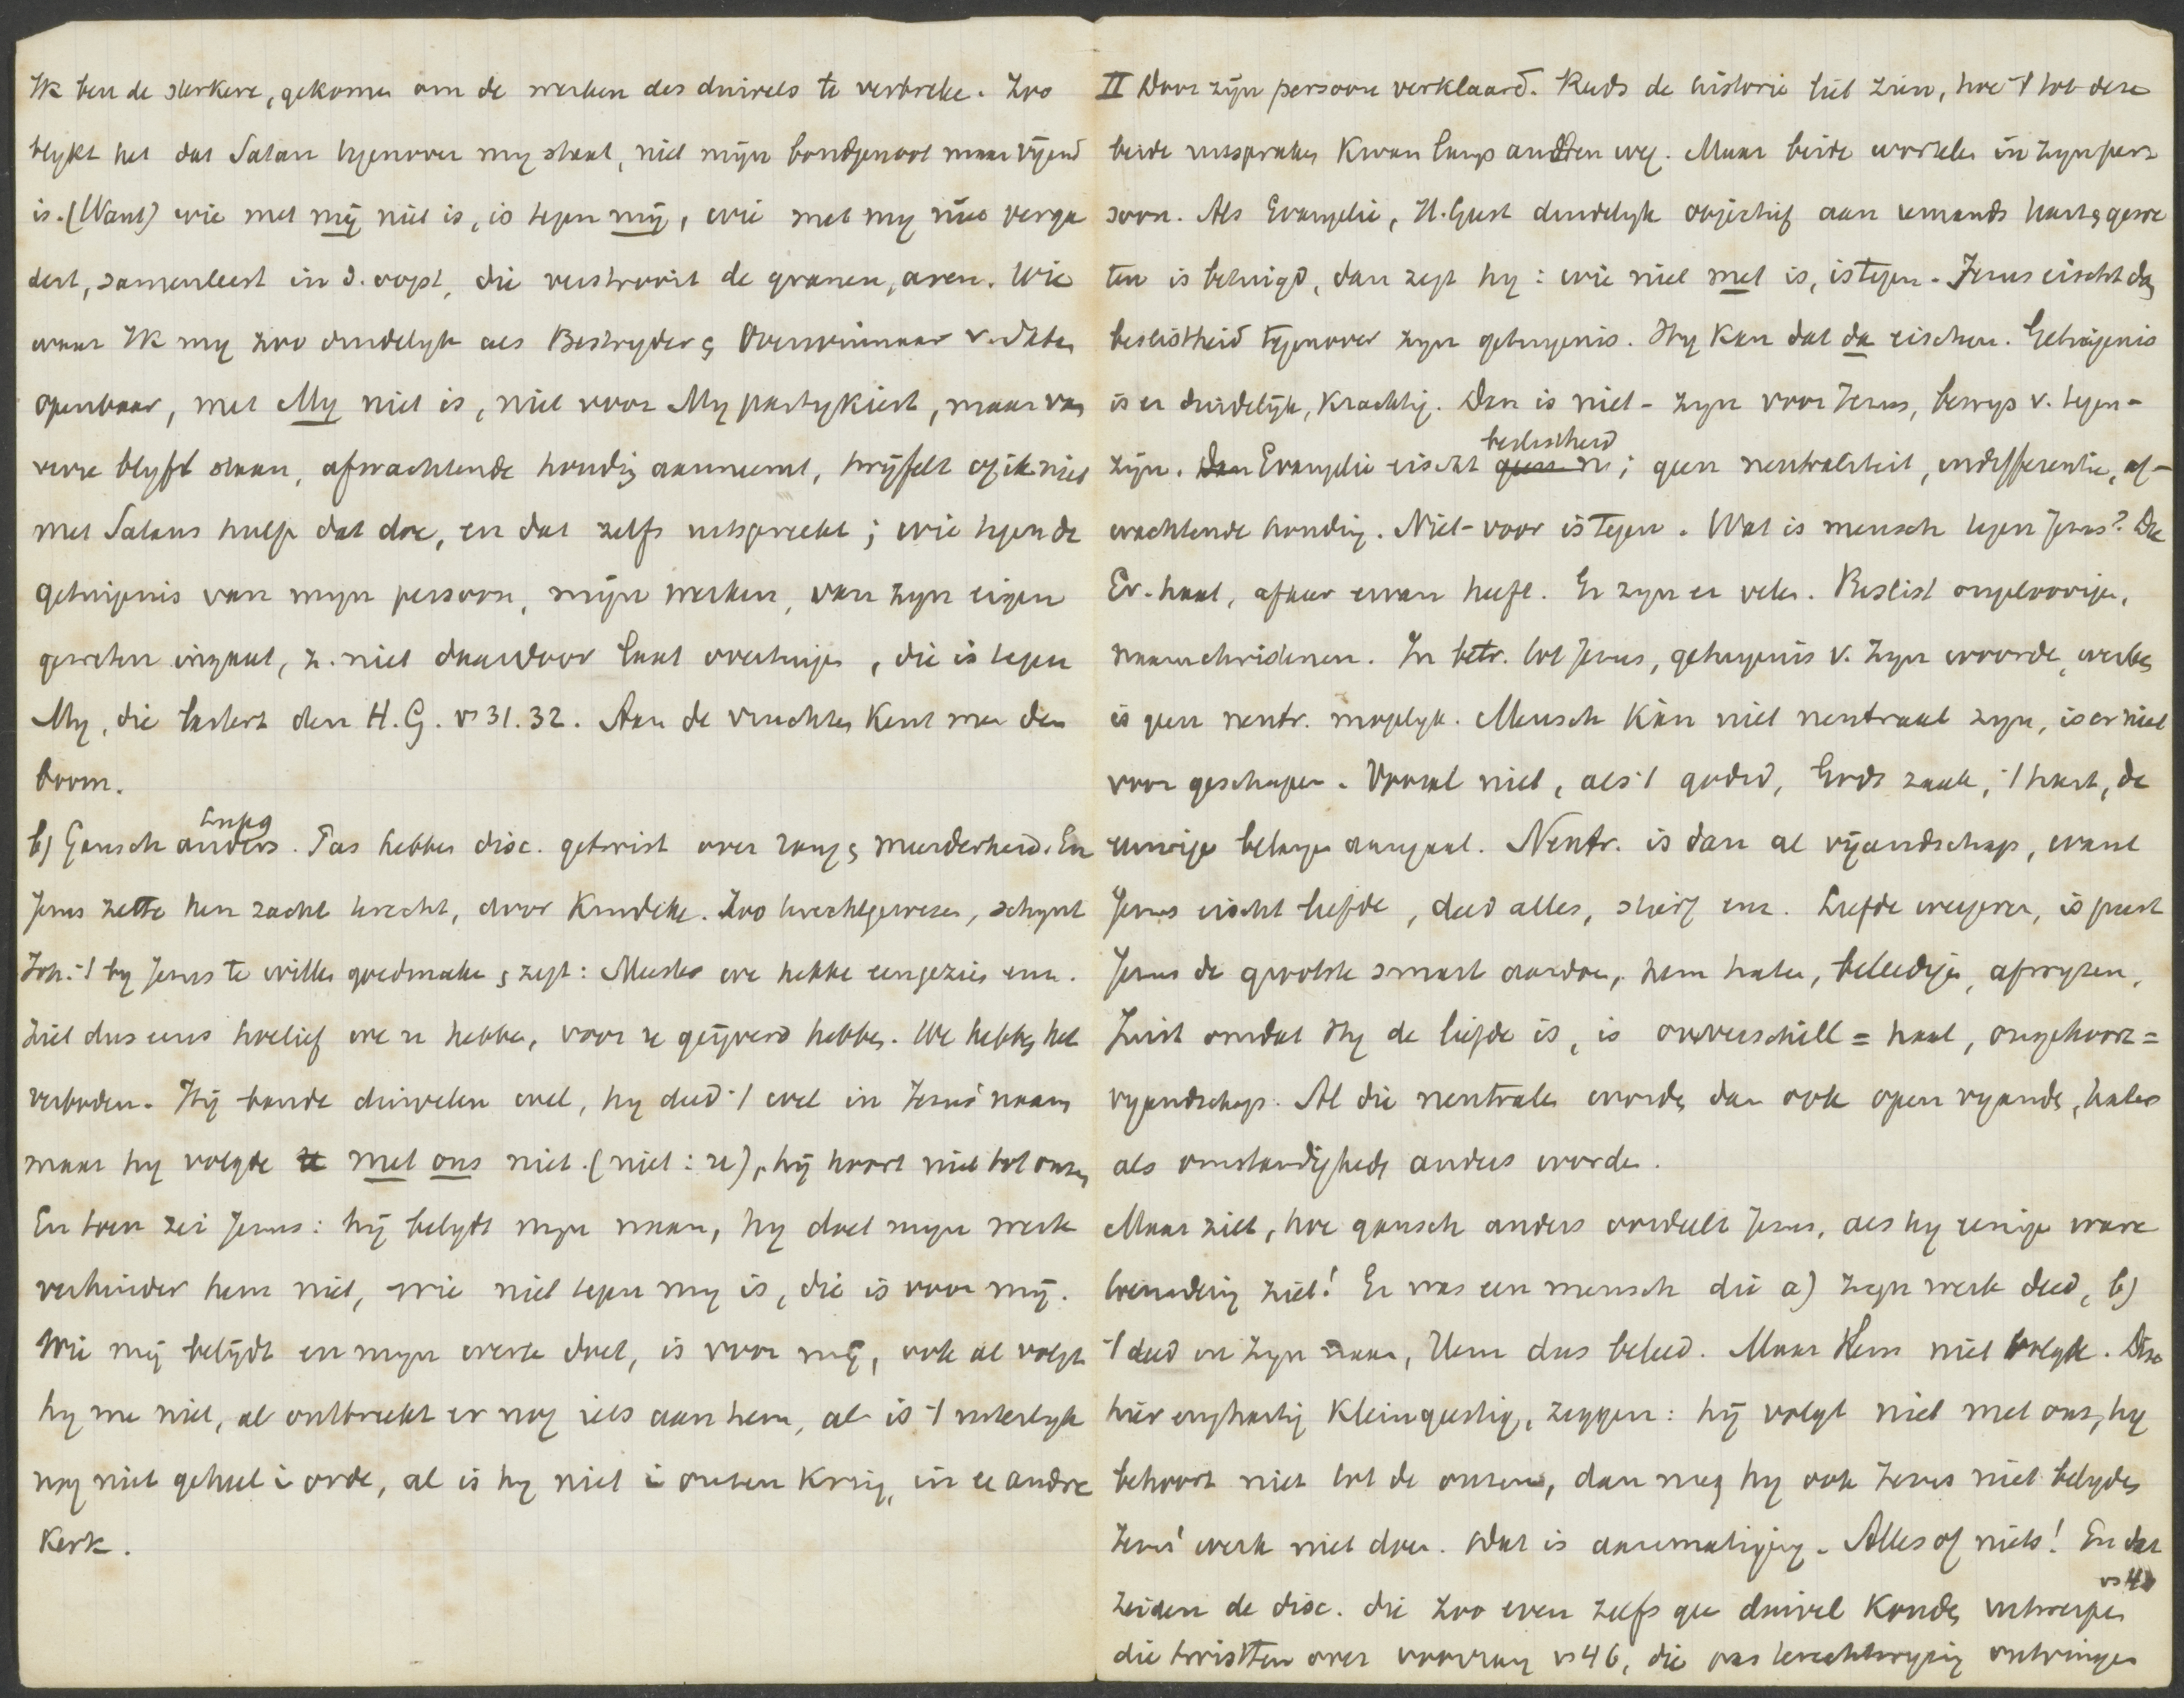 Ik ben de sterkere, gekomen om de werken des duivels te verbreke. Zoo
blykt het dat Satan tegenover my staat, niet mijn bondgenoot maar vijand
is. (Want) wie met mij niet is, is tegen mij, wie met my niet verga
dert, samenleest in d. oogst, die verstrooit de granen, aren. Wie
waar Ik my zoo duidelyk als Bestryder & Overwinnaar v.
openbaar, met My niet is, niet voor My partykiest, maar van
verre blyft staan, afwachtende houdig aanneemt, twijfelt of ik niet
met Satans hulp dat doe, en dat zelfs uitspreekt; wie tegen de
getuigenis van myn persoon, mijn werken, van zyn eigen
geweten ingaat, z. niet daardoor laat overtuigen, die is tegen
My, die lastert den H.G. vs 31.32. Aan de vruchten kent men den
boom.
b) Gansch anders Luk 9. Pas hebben disc. getwist over rang & meerderheid. En
Jezus zette hen zacht terecht, door kindeke. Zoo terechtgewezen, schynt
Joh. 't by Jezus te willen goedmaken & zegt: Meester we hebbe eengezien enz.
Ziet dus eens hoelief we u hebben, voor u geijverd hebben. We hebben het
verboden. Hij bande duivelen wel, hy deed 't wel in Jezus' naam
maar hy volgde u met ons niet. (niet: u), hij hoort niet tot onzen
En toen zei Jezus: hij belydt myn naam, hy doet myn werk
verhinder hem niet, wie niet tegen my is, die is voor mij.
Wie mij belijdt en myn werk doet, is voor mij, ook al volgt
hy me niet, al ontbreekt er nog iets aan hem, al is 't uiterlyk
nog niet geheel i orde, al is hy niet i onzen kring, in ee andre
Kerk.
II Door zijn persoon verklaard. Reeds de historie liet zien, hoe 't tot deze
beide uitspraken kwam langs andren weg. Maar beide wortelen in zyn per
soon. Als Evangelie, H. Geest duidelyk objectief aan iemands hart & gewe
ten is betuigd, dan zegt hy: wie niet met is, is tegen. Jezus eischt dan
beslistheid tegenover zyn getuigenis. Hy kan dat dan eischen. Getuigenis
is er duidelijk, krachtig. Dan is niet-zyn voor Jezus, bewys v. tegen-
zijn. Dan Evangelie eischt geen n beslistheid; geen neutraliteit, indifferentie, af-
wachtende houding. Niet-voor is tegen. Wat is mensch tegen Jezus? Die
Ev. haat, afkeer ervan heeft. Er zyn er velen. Beslist ongeloovigen,
naamchristenen. In betr. tot Jezus, getuigenis v. Zyn woorde, werken
is geen neutr. mogelyk. Mensch kàn niet neutraal zyn, is er niet
voor geschapen. Vooral niet, als 't godsd, Gods zaak, 't hart, de
eeuwige belangen aangaat. Neutr. is dan al vijandschap, want
Jezus eischt liefde, deed alles, stierf enz. Liefde weigeren, is juist
Jezus de grootste smart aandoen, hem haten, beleedigen, afwyzen,
Juist omdat Hy de liefde is, is onverschill = haat, ongehoorz =
vyandschap. Al die neutralen worden dan ook open vyands, haters
als omstandighedn anders worden.
Maar ziet, hoe gansch anders oordeelt Jezus, als hy eenige ware
toenadering ziet! Er was een mensch die a) zyn werk deed, b)
't deed in zyn naam, Hem dus beleed. Maar Hem niet volgde. Disc
hier enghartig kleingeestig, zeggen: hij volgt niet met ons, hy
behoort niet tot de onzen, dan mag hy ook Jezus niet belyden
Jezus' werk niet doen. Dat is aanmatiging. Alles of niets! En dat
zeiden de disc. die zoo even zelfs gee duivel konden uitwerpen vs 40
die twistten over voorrang vs 46, die pas terechtwyzing ontvingen